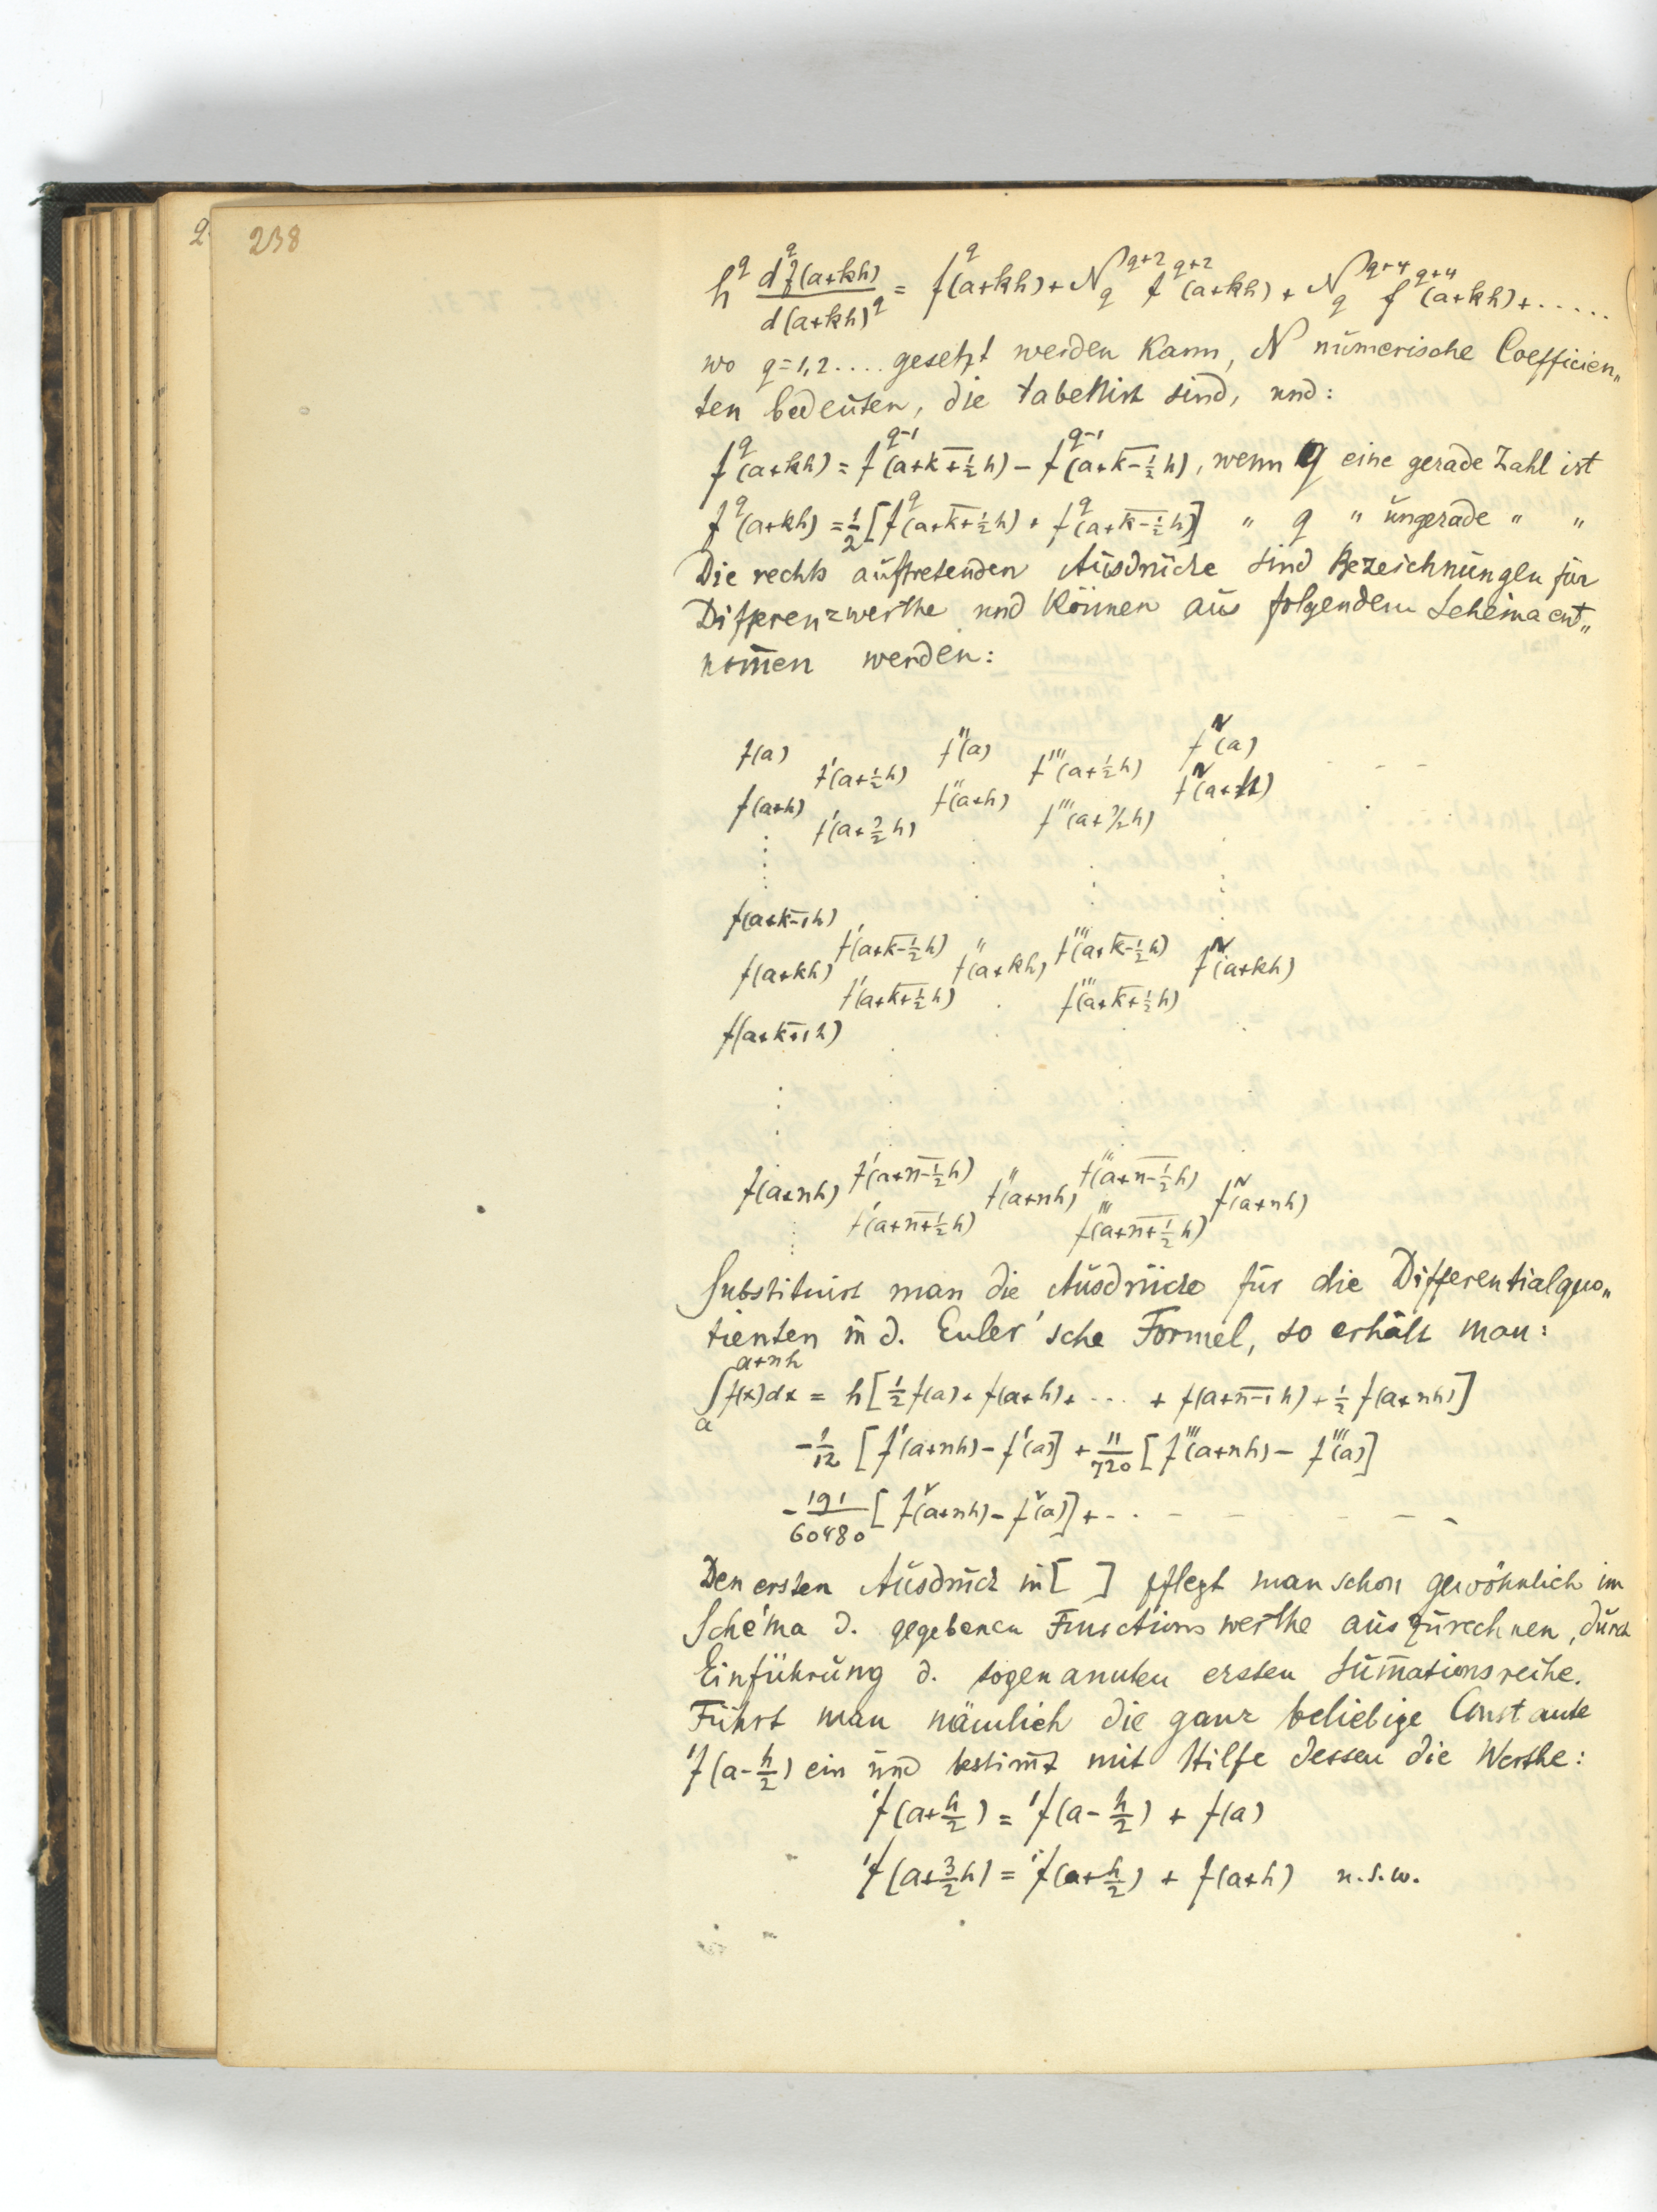 2
238
h^q d^q f(a+kh) / d(a+kh)^q = f^q(a+kh) + N_q^{q+2} f^{q+2}(a+kh) + N_q^{q+4} f^{q+4}(a+kh) + .....
wo q=1,2.... gesetzt werden kann, N numerische Coefficien„
ten bedeuten, die tabellirt sind, und:
f^q(a+kh) = f^{q-1}(a+k+½h) - f^{q-1}(a+k-½h), wenn q eine gerade Zahl ist
f^q(a+kh) = ½[f^q(a+k+½h) + f^q(a+k-½h)] " q " ungerade " "
Die rechts auftretenden Ausdrücke sind Bezeichnungen für
Differenzwerthe und können aus folgendem Schema ent„
nom̅en werden:
f(a) f'(a+½h) f''(a) f'''(a+½h) f^{IV}(a) - - -
f(a+h) f'(a+3/2h) f''(a+h) f'''(a+3/2h) f^{IV}(a+h)
f(a+k-1h)
f(a+kh) f'(a+k-½h) f''(a+kh) f'''(a+k-½h) f^{IV}(a+kh)
f'(a+k+½h) f'''(a+k+½h)
f(a+k+1h)
f(a+nh) f'(a+n-½h) f''(a+nh) f'''(a+n-½h) f^{IV}(a+nh)
f'(a+n+½h) f'''(a+n+½h)
Substituirt man die Ausdrücke für die Differentialquo„
tienten in d. Euler'sche Formel, so erhält man:
∫_a^{a+nh} f(x)dx = h[½f(a) + f(a+h) + ... + f(a+n-1h) + ½f(a+nh)]
-1/12 [f'(a+nh) - f'(a)] + 11/720 [f'''(a+nh) - f'''(a)]
-191/60480 [f^V(a+nh) - f^V(a)] + - - - - - - -
Den ersten Ausdruck in [ ] pflegt man schon gewöhnlich im
Schema d. gegebenen Functionswerthe auszurechnen, durch
Einführung d. sogenannten ersten Sum̅ationsreihe.
Führt man nämlich die ganz beliebige Constante
'f(a-h/2) ein und bestim̅t mit Hilfe dessen die Werthe:
'f(a+h/2) = 'f(a-h/2) + f(a)
'f(a+3/2h) = 'f(a+h/2) + f(a+h) u.s.w.